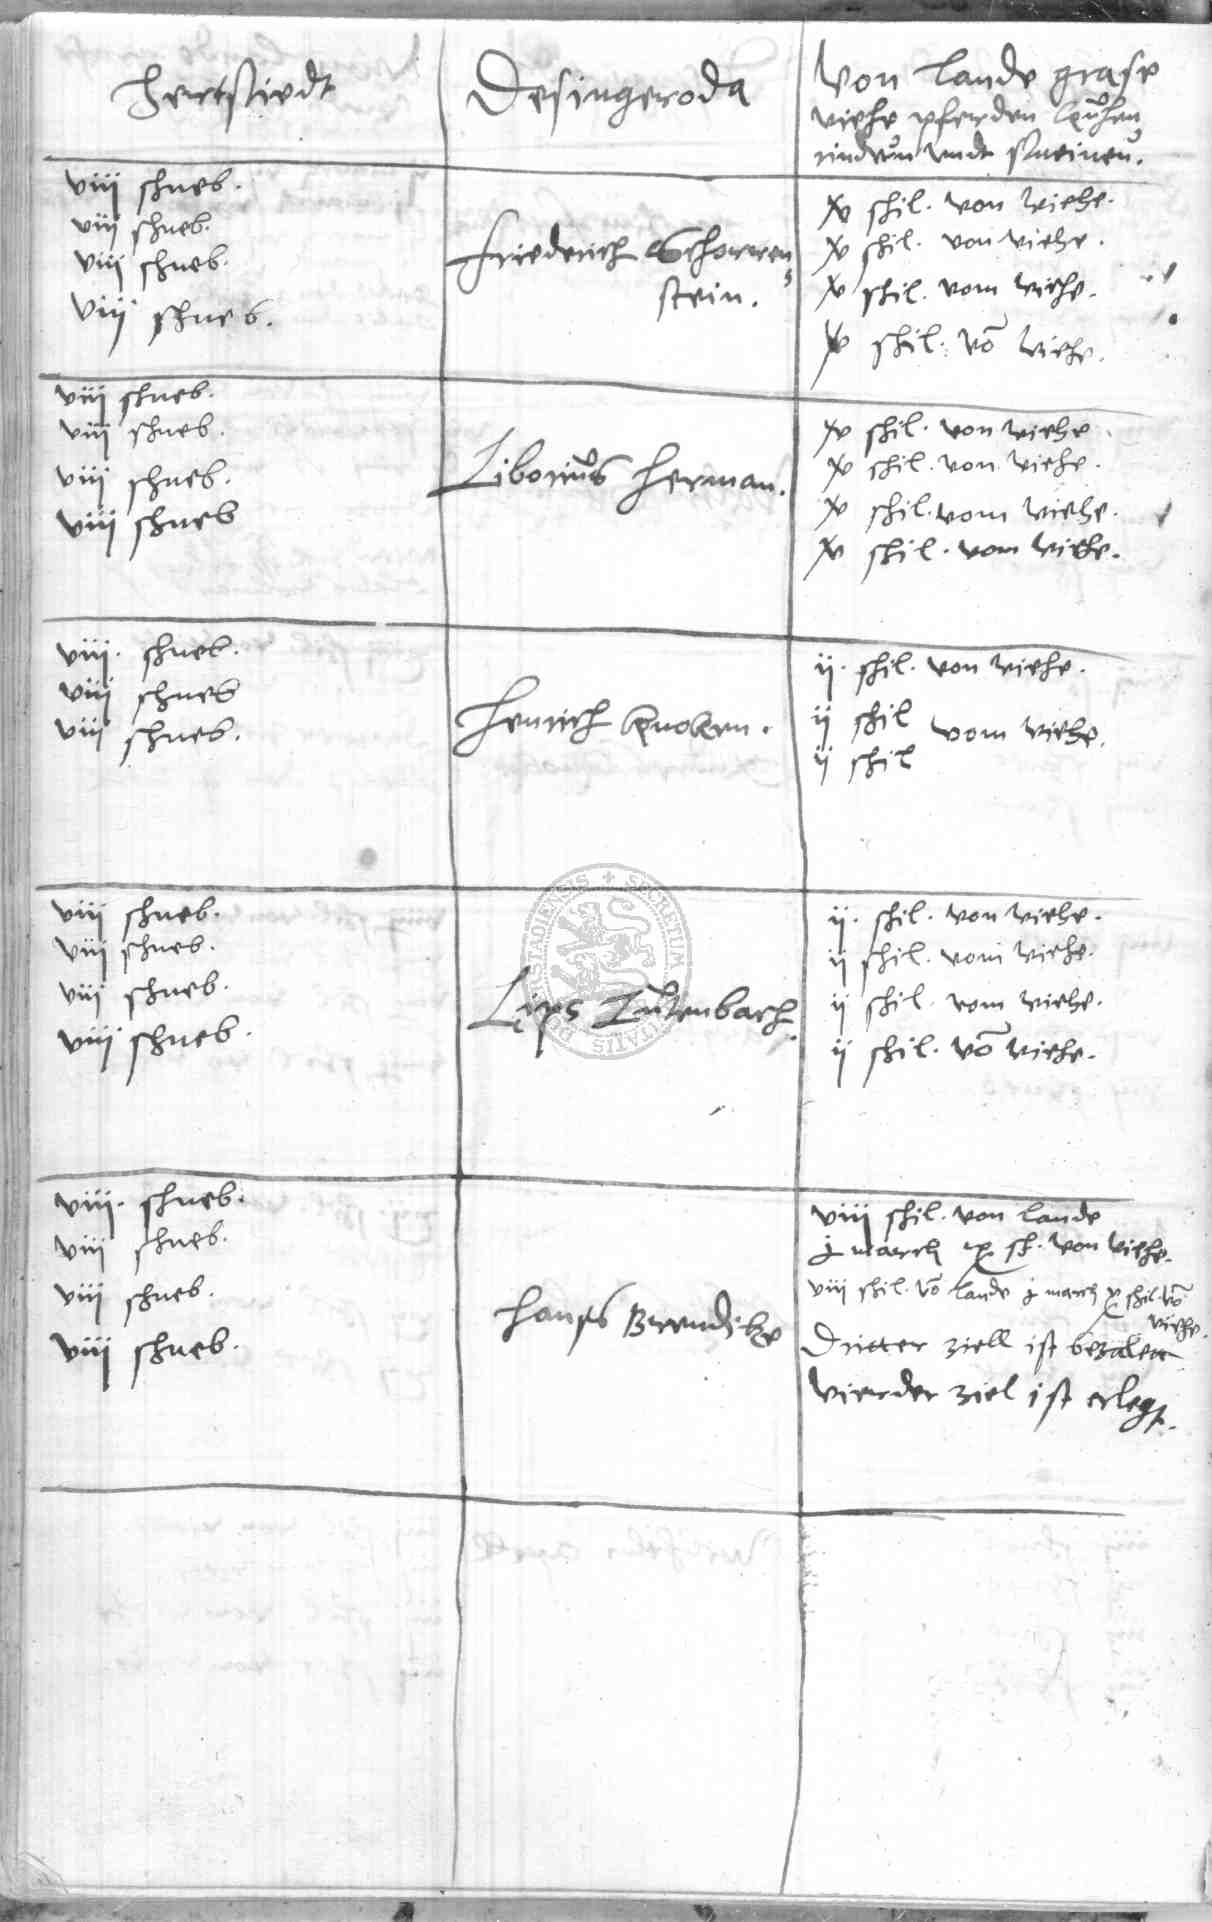 Hertstiedt
Desingeroda
Von lande grase
viehe pferden kuhen
rindern undt schweinen.
viii schneb.
viii schneb.
viii schneb.
viii schneb.
Friederich Schorren
stein.
xv schil. von viehe.
xv schil. von viehe.
xv schil. vom viehe.
xv schil. vō viehe.
viii schneb.
viii schneb.
viii schneb.
viii schneb
Liborius Herman.
xv schil. von viehe.
xv schil. von viehe.
xv schil. vom viehe.
xv schil. vom viehe.
viii. schneb.
viii schneb
viii schneb.
Henrich Knoken.
ij. schil. von viehe.
ij schil
vom viehe.
ij schil
viii schneb.
viii schneb.
viii schneb.
viii schneb.
Lips Tutenbach.
ij. schil. von viehe.
ij schil. vom viehe.
ij schil. vom viehe.
ij schil. vō viehe.
viii. schneb.
viii schneb.
viii schneb.
viii schneb.
Hanss
viii schil. von lande
j march x sch. von viehe.
viii schil. vō lande j march x schil. vō
viehe.
Dritter ziell ist bezalett
Vierder ziel ist erlegt.
SECRETUM